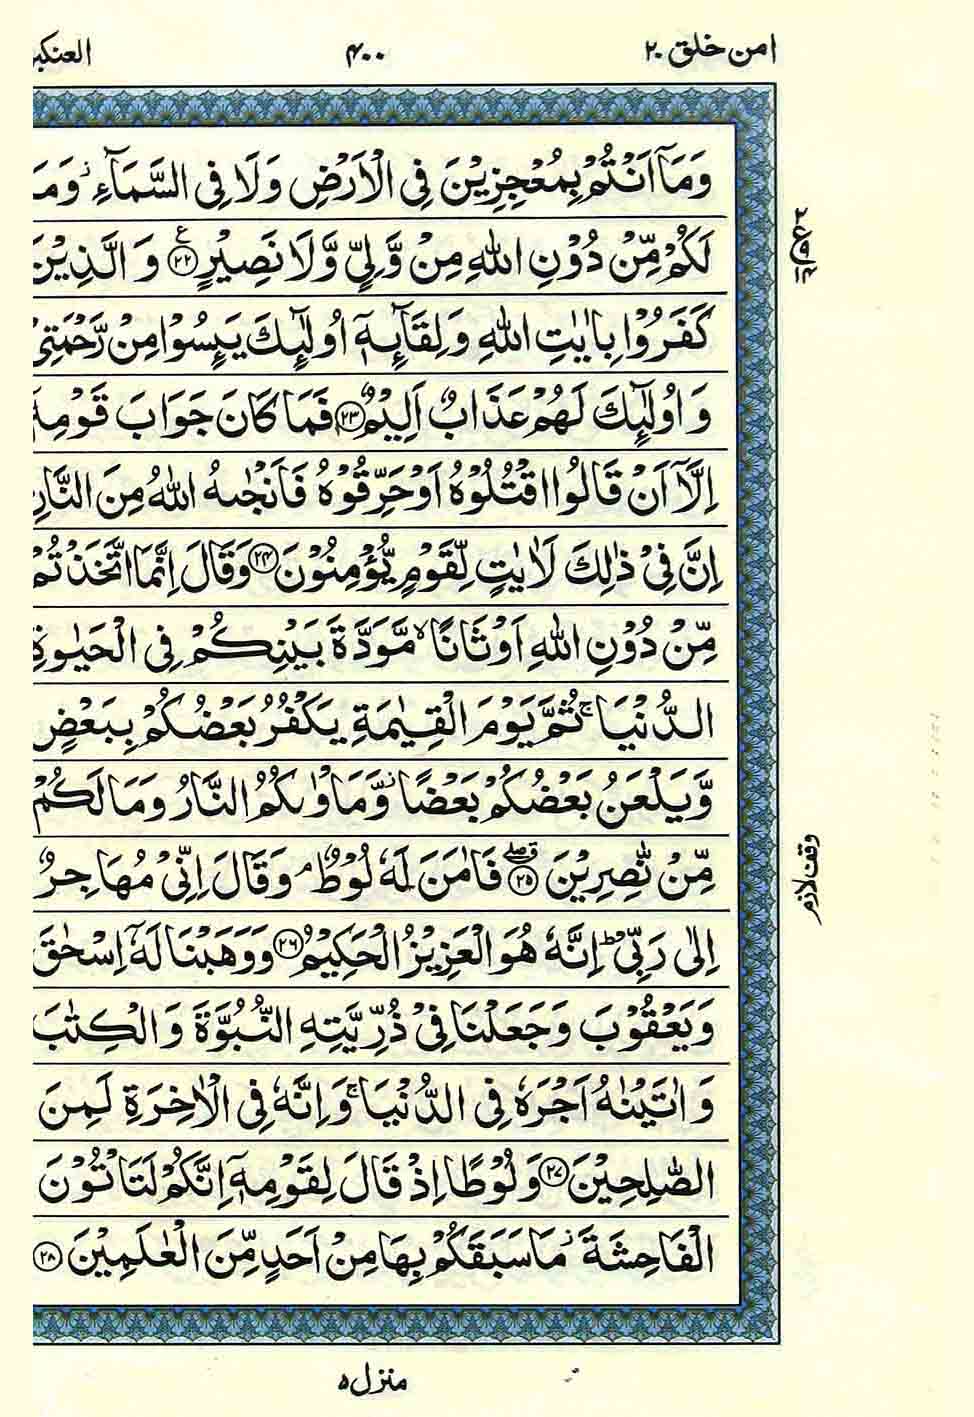 امن خلق ۲۰
۴۰۰
العنكبو
وَمَآ اَنْتُمْ بِمُعْجِزِيْنَ فِى الْاَرْضِ وَلَا فِى السَّمَآءِ ۡ وَمَا
لَكُمْ مِّنْ دُوْنِ اللّٰهِ مِنْ وَّلِىٍّ وَّلَا نَصِيْرٍ ﴿۲۲﴾ ع وَالَّذِيْنَ
كَفَرُوْا بِاٰيٰتِ اللّٰهِ وَلِقَآئِهٖٓ اُولٰٓئِكَ يَئِسُوْا مِنْ رَّحْمَتِىْ
وَاُولٰٓئِكَ لَهُمْ عَذَابٌ اَلِيْمٌ ﴿۲۳﴾ فَمَا كَانَ جَوَابَ قَوْمِهٖٓ
اِلَّآ اَنْ قَالُوا اقْتُلُوْهُ اَوْ حَرِّقُوْهُ فَاَنْجٰىهُ اللّٰهُ مِنَ النَّارِ
اِنَّ فِىْ ذٰلِكَ لَاٰيٰتٍ لِّقَوْمٍ يُّؤْمِنُوْنَ ﴿۲۴﴾ وَقَالَ اِنَّمَا اتَّخَذْتُمْ
مِّنْ دُوْنِ اللّٰهِ اَوْثَانًا ۙ مَّوَدَّةَ بَيْنِكُمْ فِى الْحَيٰوةِ
الدُّنْيَا ۚ ثُمَّ يَوْمَ الْقِيٰمَةِ يَكْفُرُ بَعْضُكُمْ بِبَعْضٍ
وَّيَلْعَنُ بَعْضُكُمْ بَعْضًا ۡ وَّمَاْوٰىكُمُ النَّارُ وَمَا لَكُمْ
مِّنْ نّٰصِرِيْنَ ﴿۲۵﴾ فَاٰمَنَ لَهٗ لُوْطٌ ۘ وَقَالَ اِنِّىْ مُهَاجِرٌ
اِلٰى رَبِّىْ ؕ اِنَّهٗ هُوَ الْعَزِيْزُ الْحَكِيْمُ ﴿۲۶﴾ وَوَهَبْنَا لَهٗٓ اِسْحٰقَ
وَيَعْقُوْبَ وَجَعَلْنَا فِىْ ذُرِّيَّتِهِ النُّبُوَّةَ وَالْكِتٰبَ
وَاٰتَيْنٰهُ اَجْرَهٗ فِى الدُّنْيَا ۚ وَاِنَّهٗ فِى الْاٰخِرَةِ لَمِنَ
الصّٰلِحِيْنَ ﴿۲۷﴾ وَلُوْطًا اِذْ قَالَ لِقَوْمِهٖٓ اِنَّكُمْ لَتَاْتُوْنَ
الْفَاحِشَةَ ۡ مَا سَبَقَكُمْ بِهَا مِنْ اَحَدٍ مِّنَ الْعٰلَمِيْنَ ﴿۲۸﴾
وقف لازم
منزل ۵